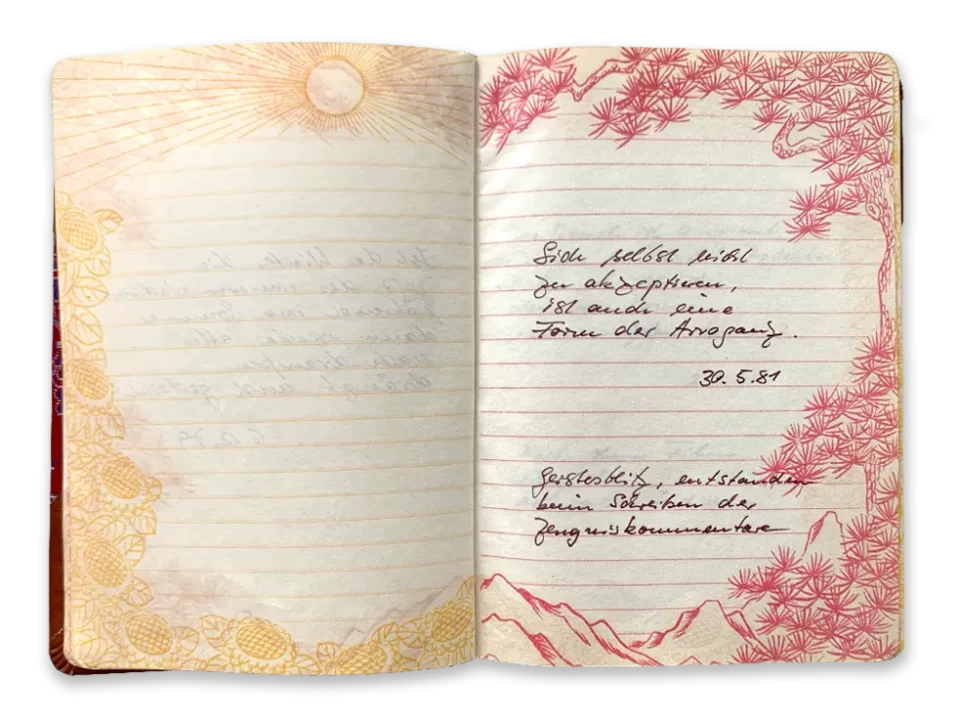 Sich selbst nicht
zu akzeptieren,
ist auch eine
Form der Arroganz.
30.5.81
Geistesblitz, entstanden
beim Schreiben der
Zeugniskommentare